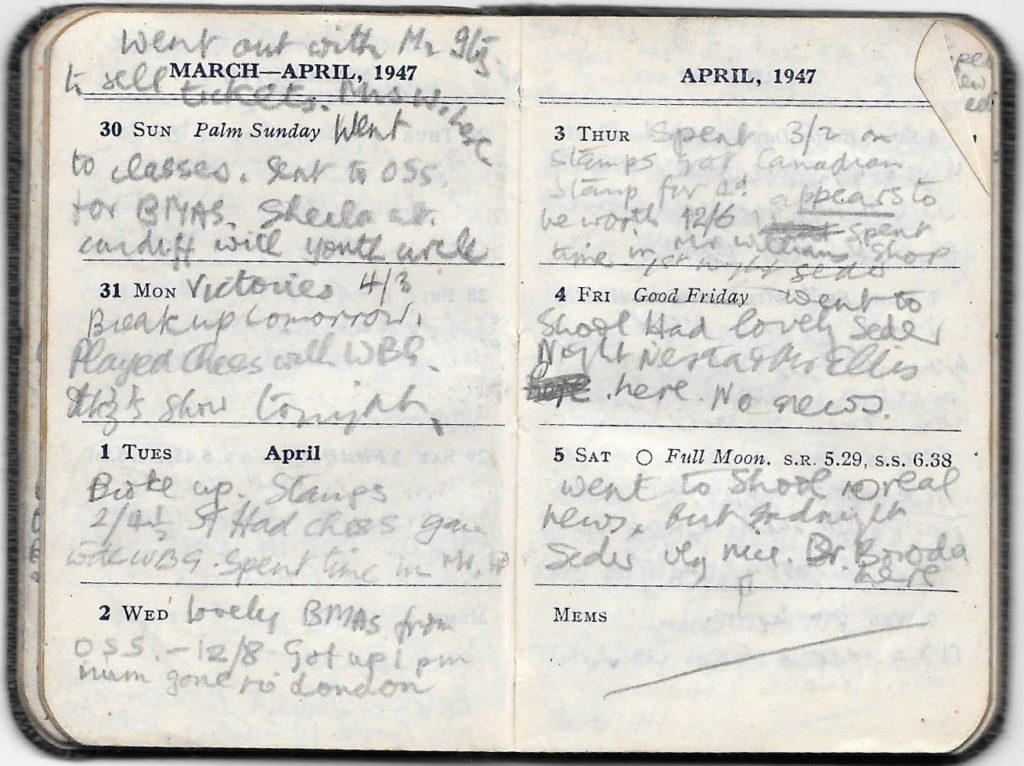 Went out with Mr
MARCH—APRIL, 1947
to sell tickets. Mrs W. here
30 SUN Palm Sunday Went
to classes. Sent to OSS.
for BMAS. Sheila at
Cardiff with youth circle
31 MON Victories 4/3
Break up tomorrow.
Played Chess with WBG.
show tonight
1 TUES April
Broke up. Stamps
2/4½ Had chess game
with WBG. Spent time in Mr.
2 WED lovely BMAs from
O.S.S. – 12/8 Got up 1 pm
Mum gone to London
APRIL, 1947
3 THUR Spent 3/2 on
Stamps got Canadian
Stamp for 2d appears to
be worth 12/6 Spent
time in Mr Williams Shop
1st night Seder
4 FRI Good Friday Went to
Shool Had lovely Seder
Night Nesta & Mr Ellis
here. No news.
5 SAT Full Moon. S.R. 5.29, S.S. 6.38
Went to Shool no real
news, but 2nd night
Seder very nice. Dr. Boroda
here
MEMS